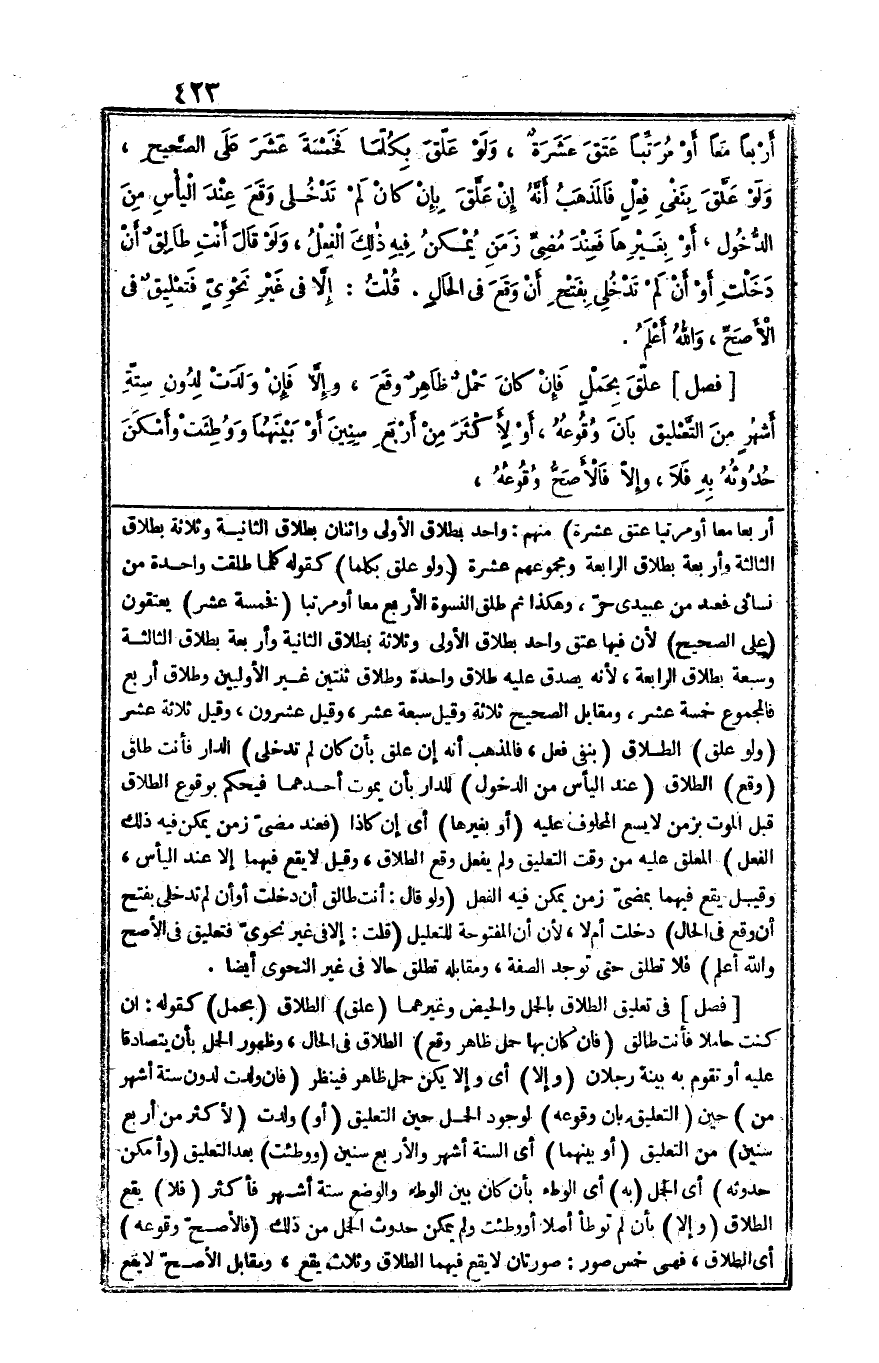 ٤٢٣
أَرْبَعاً مَعاً أَوْ مُرَتَّباً عَتَقَ عَشَرَةٌ ، وَلَوْ عَلَّقَ بِكُلَّمَا فَخَمْسَةَ عَشَرَ عَلَى الصَّحِيحِ ،
وَلَوْ عَلَّقَ بِنَفْىِ فِعْلٍ فَالْمَذْهَبُ أَنَّهُ إِنْ عَلَّقَ بِإِنْ كَانْ لَمْ تَدْخُلِى وَقَعَ عِنْدَ الْيَأْسِ مِنَ
الدُّخُولِ ، أَوْ بِغَيْرِهَا فَعِنْدَ مُضِىِّ زَمَنٍ يُمْكِنُ فِيهِ ذٰلِكَ الْفِعْلُ ، وَلَوْ قَالَ أَنْتِ طَالِقٌ أَنْ
دَخَلْتِ أَوْ أَنْ لَمْ تَدْخُلِى بِفَتْحِ أَنْ وَقَعَ فى الحَالِ . قُلْتُ : إِلَّا فى غَيْرِ نَحْوِىٍّ فَتَعْلِيقٌ فى
الْأَصَحِّ ، وَاللهُ أَعْلَمُ .
[ فصل ] علَّقَ بِحَمْلٍ فَإِنْ كانَ حَمْلٌ ظَاهِرٌ وَقَعَ ، وإِلَّا فَإِنْ وَلَدَتْ لِدُونِ سِتَّةِ
أَشهُرٍ مِنَ التَّعْلِيقِ بَانَ وُقُوعُهُ ، أَوْ لِأَكْثَرَ مِنْ أَرْبَعِ سِنِينَ أَوْ بَيْنَهُمَا وَوُطِئَتْ وأَمْكَنَ
حُدُوثُهُ بِهِ فَلَا ، وإِلاَّ فَالْأَصَحُّ وُقُوعُهُ ،
أربعا معا أو مرتبا عتق عشرة) منهم : واحد بطلاق الأولى واثنان بطلاق الثانية وثلاثة بطلاق
الثالثة وأربعة بطلاق الرابعة ومجموعهم عشرة (ولو علق بكلما) كقوله كلما طلقت واحدة من
نسائى فعبد من عبيدى حرّ ، وهكذا ثم طلق النسوة الأربع معا أو مرتبا (فخمسة عشر) يعتقون
(على الصحيح) لأن فيها عتق واحد بطلاق الأولى وثلاثة بطلاق الثانية وأربعة بطلاق الثالثة
وسبعة بطلاق الرابعة ، لأنه يصدق عليه طلاق واحدة وطلاق ثنتين غير الأوليين وطلاق أربع
فالمجموع خمسة عشر ، ومقابل الصحيح ثلاثة وقيل سبعة عشر ، وقيل عشرون ، وقيل ثلاثة عشر
(ولو علق) الطلاق (بنفى فعل ، فالمذهب أنه إن علق بأن كان لم تدخلى) الدار فأنت طالق
(وقع) الطلاق (عند اليأس من الدخول) للدار بأن يموت أحدهما فيحكم بوقوع الطلاق
قبل الموت بزمن لا يسع المحلوف عليه (أو بغيرها) أى إن كاذا (فعند مضىّ زمن يمكن فيه ذلك
الفعل) المعلق عليه من وقت التعليق ولم يفعل وقع الطلاق ، وقيل لا يقع فيهما إلا عند اليأس ،
وقيل يقع فيهما بمضىّ زمن يمكن فيه الفعل (ولو قال : أنت طالق أن دخلت أو أن لم تدخلى بفتح
أن وقع فى الحال) دخلت أم لا ، لأن أن المفتوحة للتعليل (قلت : إلا فى غير نحوىّ فتعليق فى الأصح
والله أعلم) فلا تطلق حتى توجد الصفة ، ومقابله تطلق حالا فى غير النحوى أيضا .
[ فصل ] فى تعليق الطلاق بالحمل والحيض وغيرهما (علق) الطلاق (بحمل) كقوله : ان
كنت حاملا فأنت طالق (فان كان بها حمل ظاهر وقع) الطلاق فى الحال ، وظهور الحمل بأن يتصادقا
عليه أو تقوم به بينة رجلان (وإلا) أى وإلا يكن حمل ظاهر فينظر (فان ولدت لدون ستة أشهر
من) حين (التعليق بان وقوعه) لوجود الحمل حين التعليق (أو) ولدت (لأكثر من أربع
سنين) من التعليق (أو بينهما) أى الستة أشهر والأربع سنين (ووطئت) بعد التعليق (وأمكن
حدوثه) أى الحمل (به) أى الوطء بأن كان بين الوطء والوضع ستة أشهر فأكثر (فلا) يقع
الطلاق (وإلا) بأن لم توطأ أصلا أو وطئت ولم يمكن حدوث الحمل من ذلك (فالأصحّ وقوعه)
أى الطلاق ، فهى خمس صور : صورتان لا يقع فيهما الطلاق وثلاث يقع ، ومقابل الأصحّ لا يقع